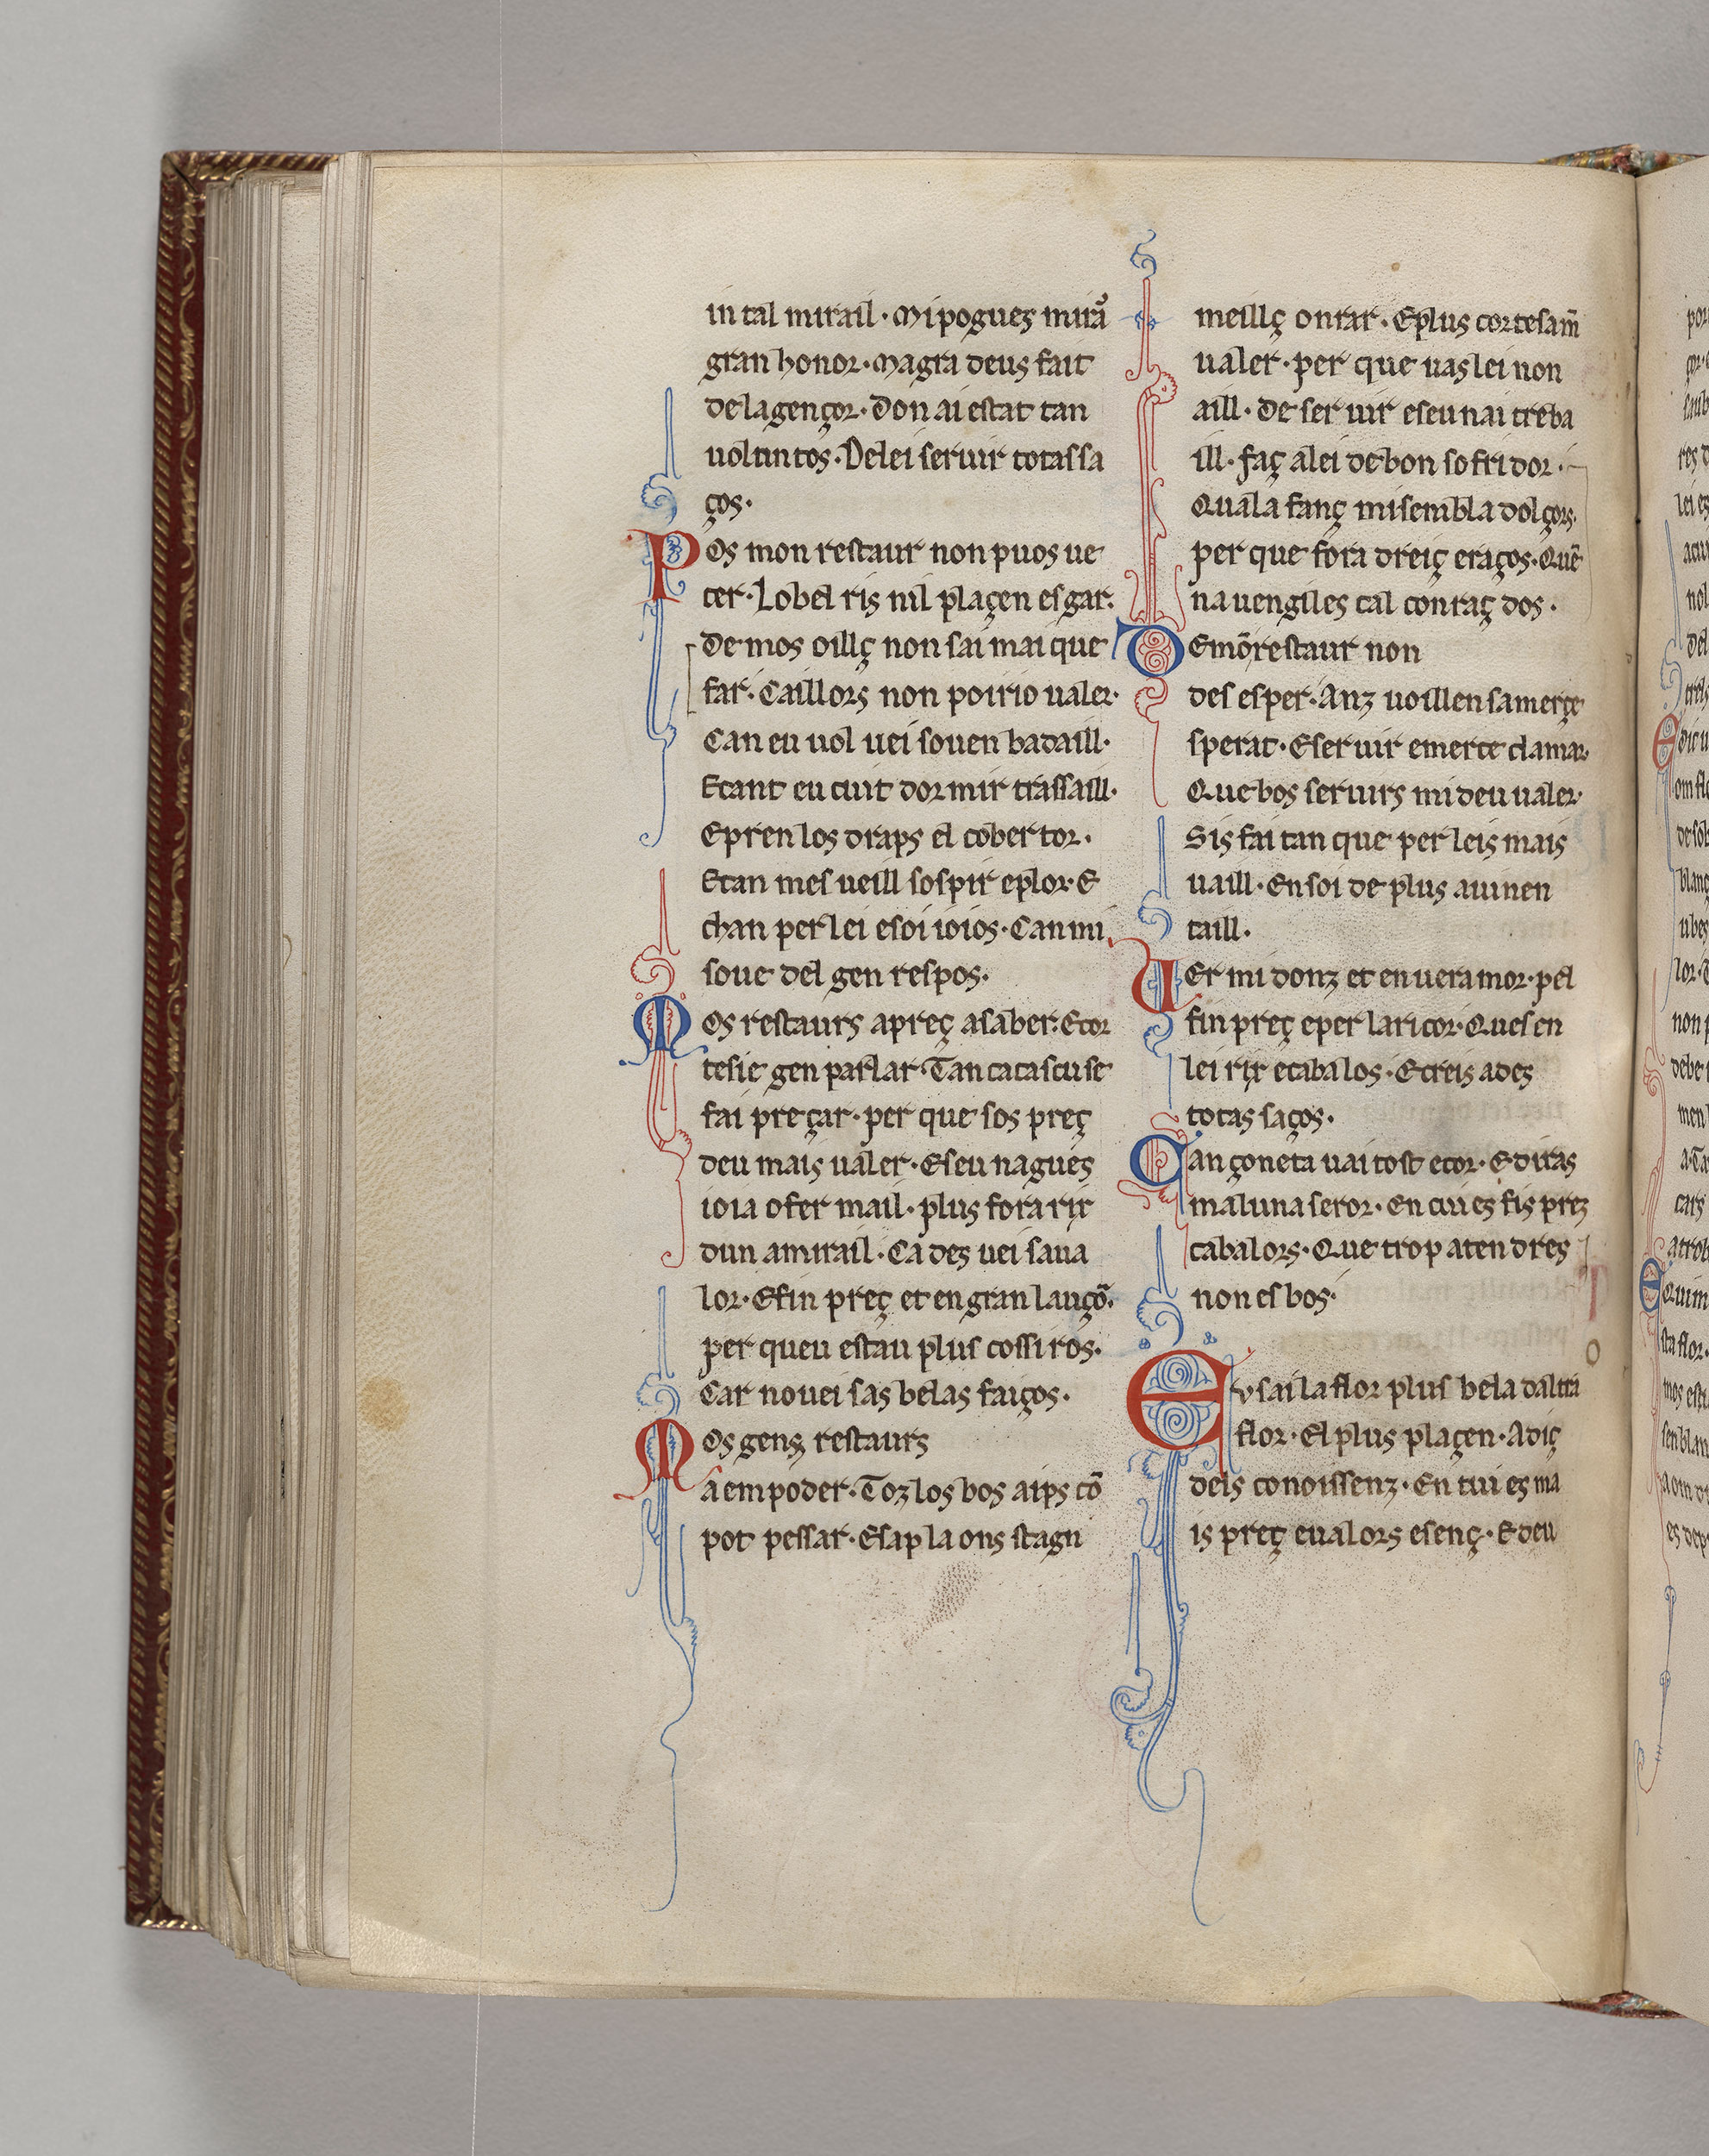 in tal mirail · Mi pogues mirar
gran honor · Magra deus fait
de la gençor · Don ai estat tan
uoluntos · De lei seruir totas sa
ços ·
Pos mon restaur non puos ue
ter · Lo bel ris nil plaçen esgar ·
De mos oillç non sai mai que
far · Caillors non poirio ualer ·
Can eu uol uei souen bataill ·
E cant eu cuit dormir trassaill ·
E pren los draps el cobertor ·
E can mes ueill sospir e plor · E
chan per lei e soi ioios · Can mi
soue del gen respos ·
Mos restaurs apreç a saber · E cor
tesi e gen parlar · Tan ca cascu se
fai preçar · per que sos preç
deu mais ualer · E seu nagues
ioia o fermail · plus fora rix
dun amirail · Cades uei sa ua
lor · E fin preç et en gran lauçō ·
per queu estau plus cossiros ·
Car no uei sas belas faiços ·
Mos gens restaurs
a em poder · Toz los bos aips cō
pot pessar · E sap la on s stagn
meillç onrar · E plus cortesam̄
ualer · per que uas lei non
aill · De seruir e seu nai treba
ill · faç a lei de bon sofridor ·
Qual afanç mi sembla dolçors ·
per que fora dreiç e raços · Quē
na uengiles cal contraç dos ·
De mō restaur non
desesper · Anz uoill en sa merçe
sperar · E seruir e merce clamar ·
Que bos seruirs mi deu ualer ·
Sis fai tan que per leis mais
uaill · En soi de plus auinen
taill ·
Uer midonz et en uer amor · pel
fin preç e per la ricor · Ques en
lei rix e cabalos · E creis ades
totas saços ·
Cançoneta uai tost e cor · E diras
mal una seror · En cui es fis prez
cabalors · Que trop atendres
non es bos ·
Eu sai la flor plus bela daltra
flor · El plus plaçen · A diç
dels conoissenz · En cui es ma
is preç e ualors e senç · E deu